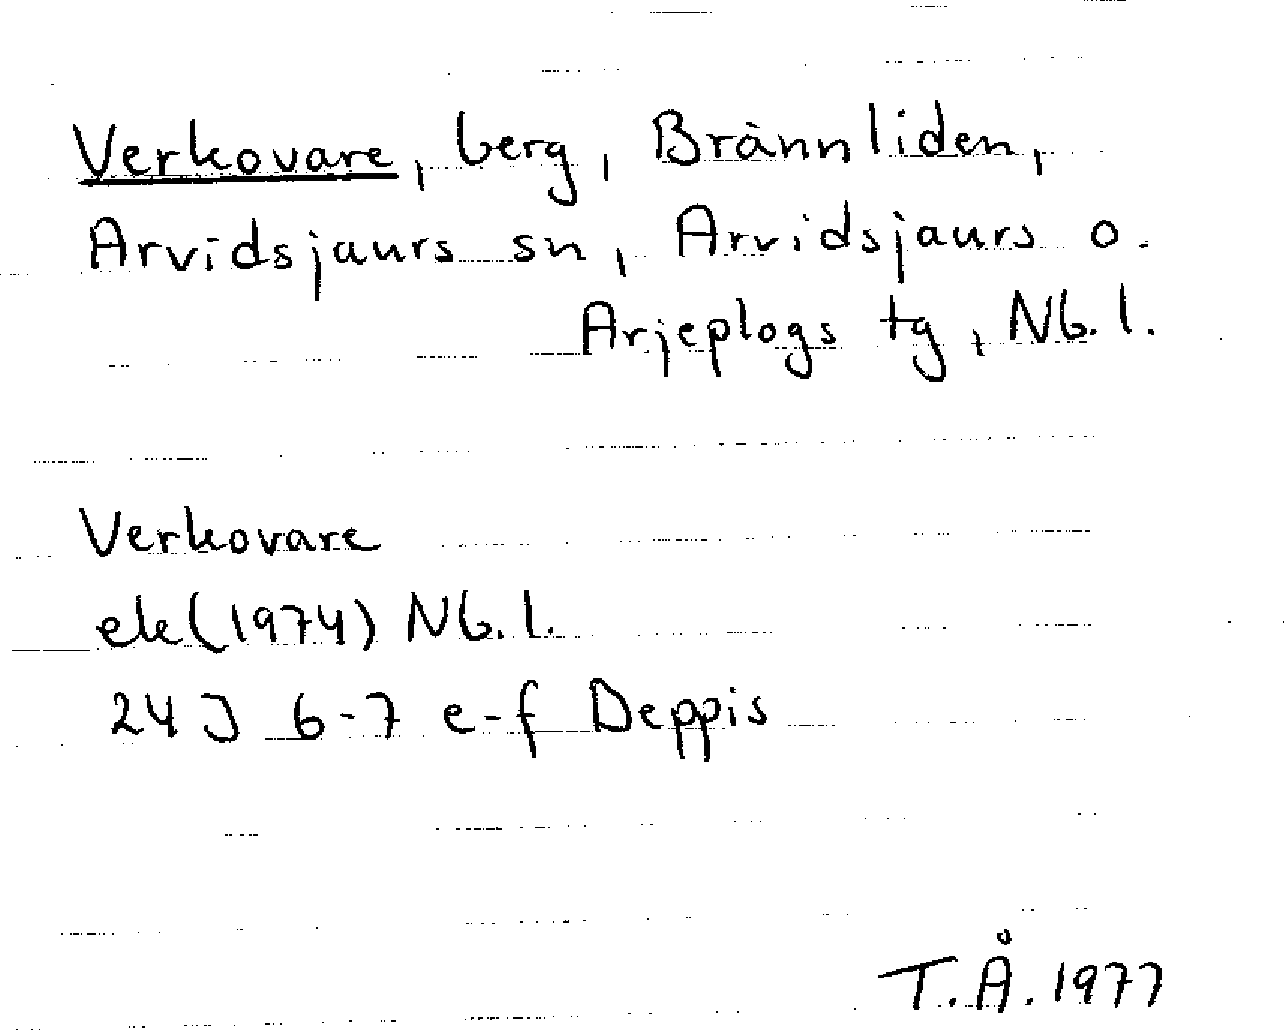 Verkovare, berg, Brännliden,
Arvidsjaurs sn, Arvidsjaurs o.
Arjeplogs tg, Nb. l.
Verkovare
ek (1974) Nb. l.
24 J 6-7 e-f Deppis
T. Å. 1977